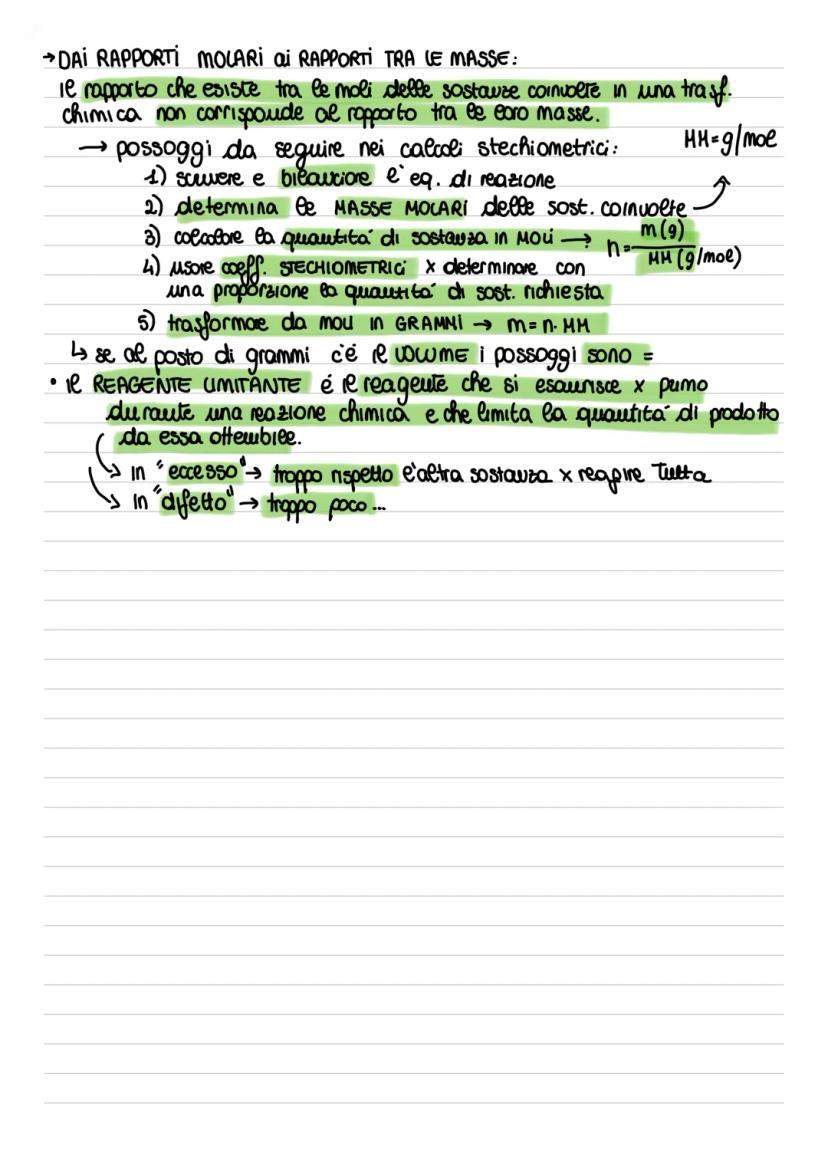 → DAI RAPPORTI MOLARI ai RAPPORTI TRA LE MASSE:
Il rapporto che esiste tra le moli delle sostanze coinvolte in una trasf.
chimica non corrisponde al rapporto tra le loro masse.
→ passaggi da seguire nei calcoli stechiometrici: MM=g/mol
1) scrivere e bilanciare l'eq. di reazione
2) determina le MASSE MOLARI delle sost. coinvolte
3) calcolare la quantità di sostanza in MOLI → n = m(g) / MM (g/mol)
4) usare coeff. STECHIOMETRICI x determinare con
una proporzione la quantità di sost. richiesta
5) trasformare da moli in GRAMMI → m = n · MM
↳ se al posto di grammi c'è il VOLUME i passaggi sono =
• il REAGENTE LIMITANTE é il reagente che si esaurisce x primo
durante una reazione chimica e che limita la quantità di prodotto
da essa ottenibile.
↳ in "eccesso" → troppo rispetto l'altra sostanza x reagire tutta
↳ in "difetto" → troppo poco...